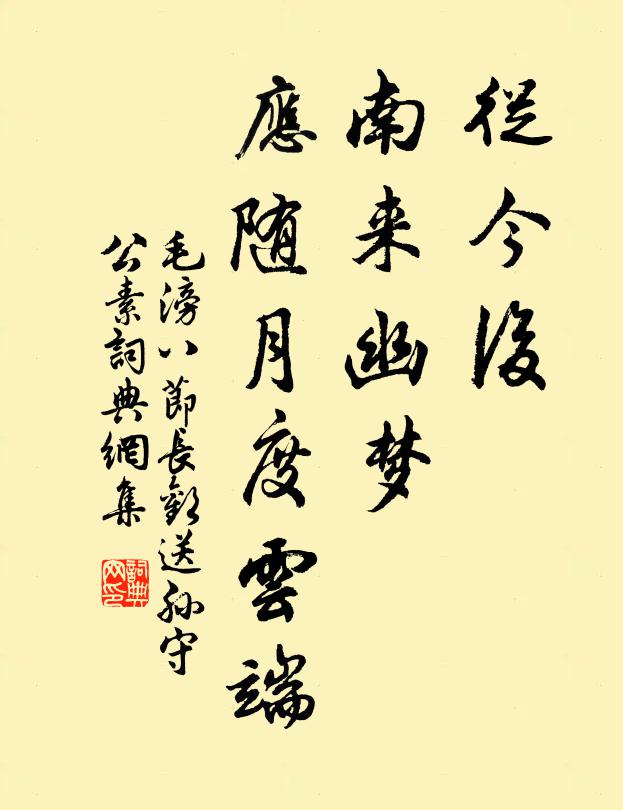 從今後
南来幽梦
應随月度雲端
毛滂八節長歡送孙守
公素詞典網集
詞典
网印